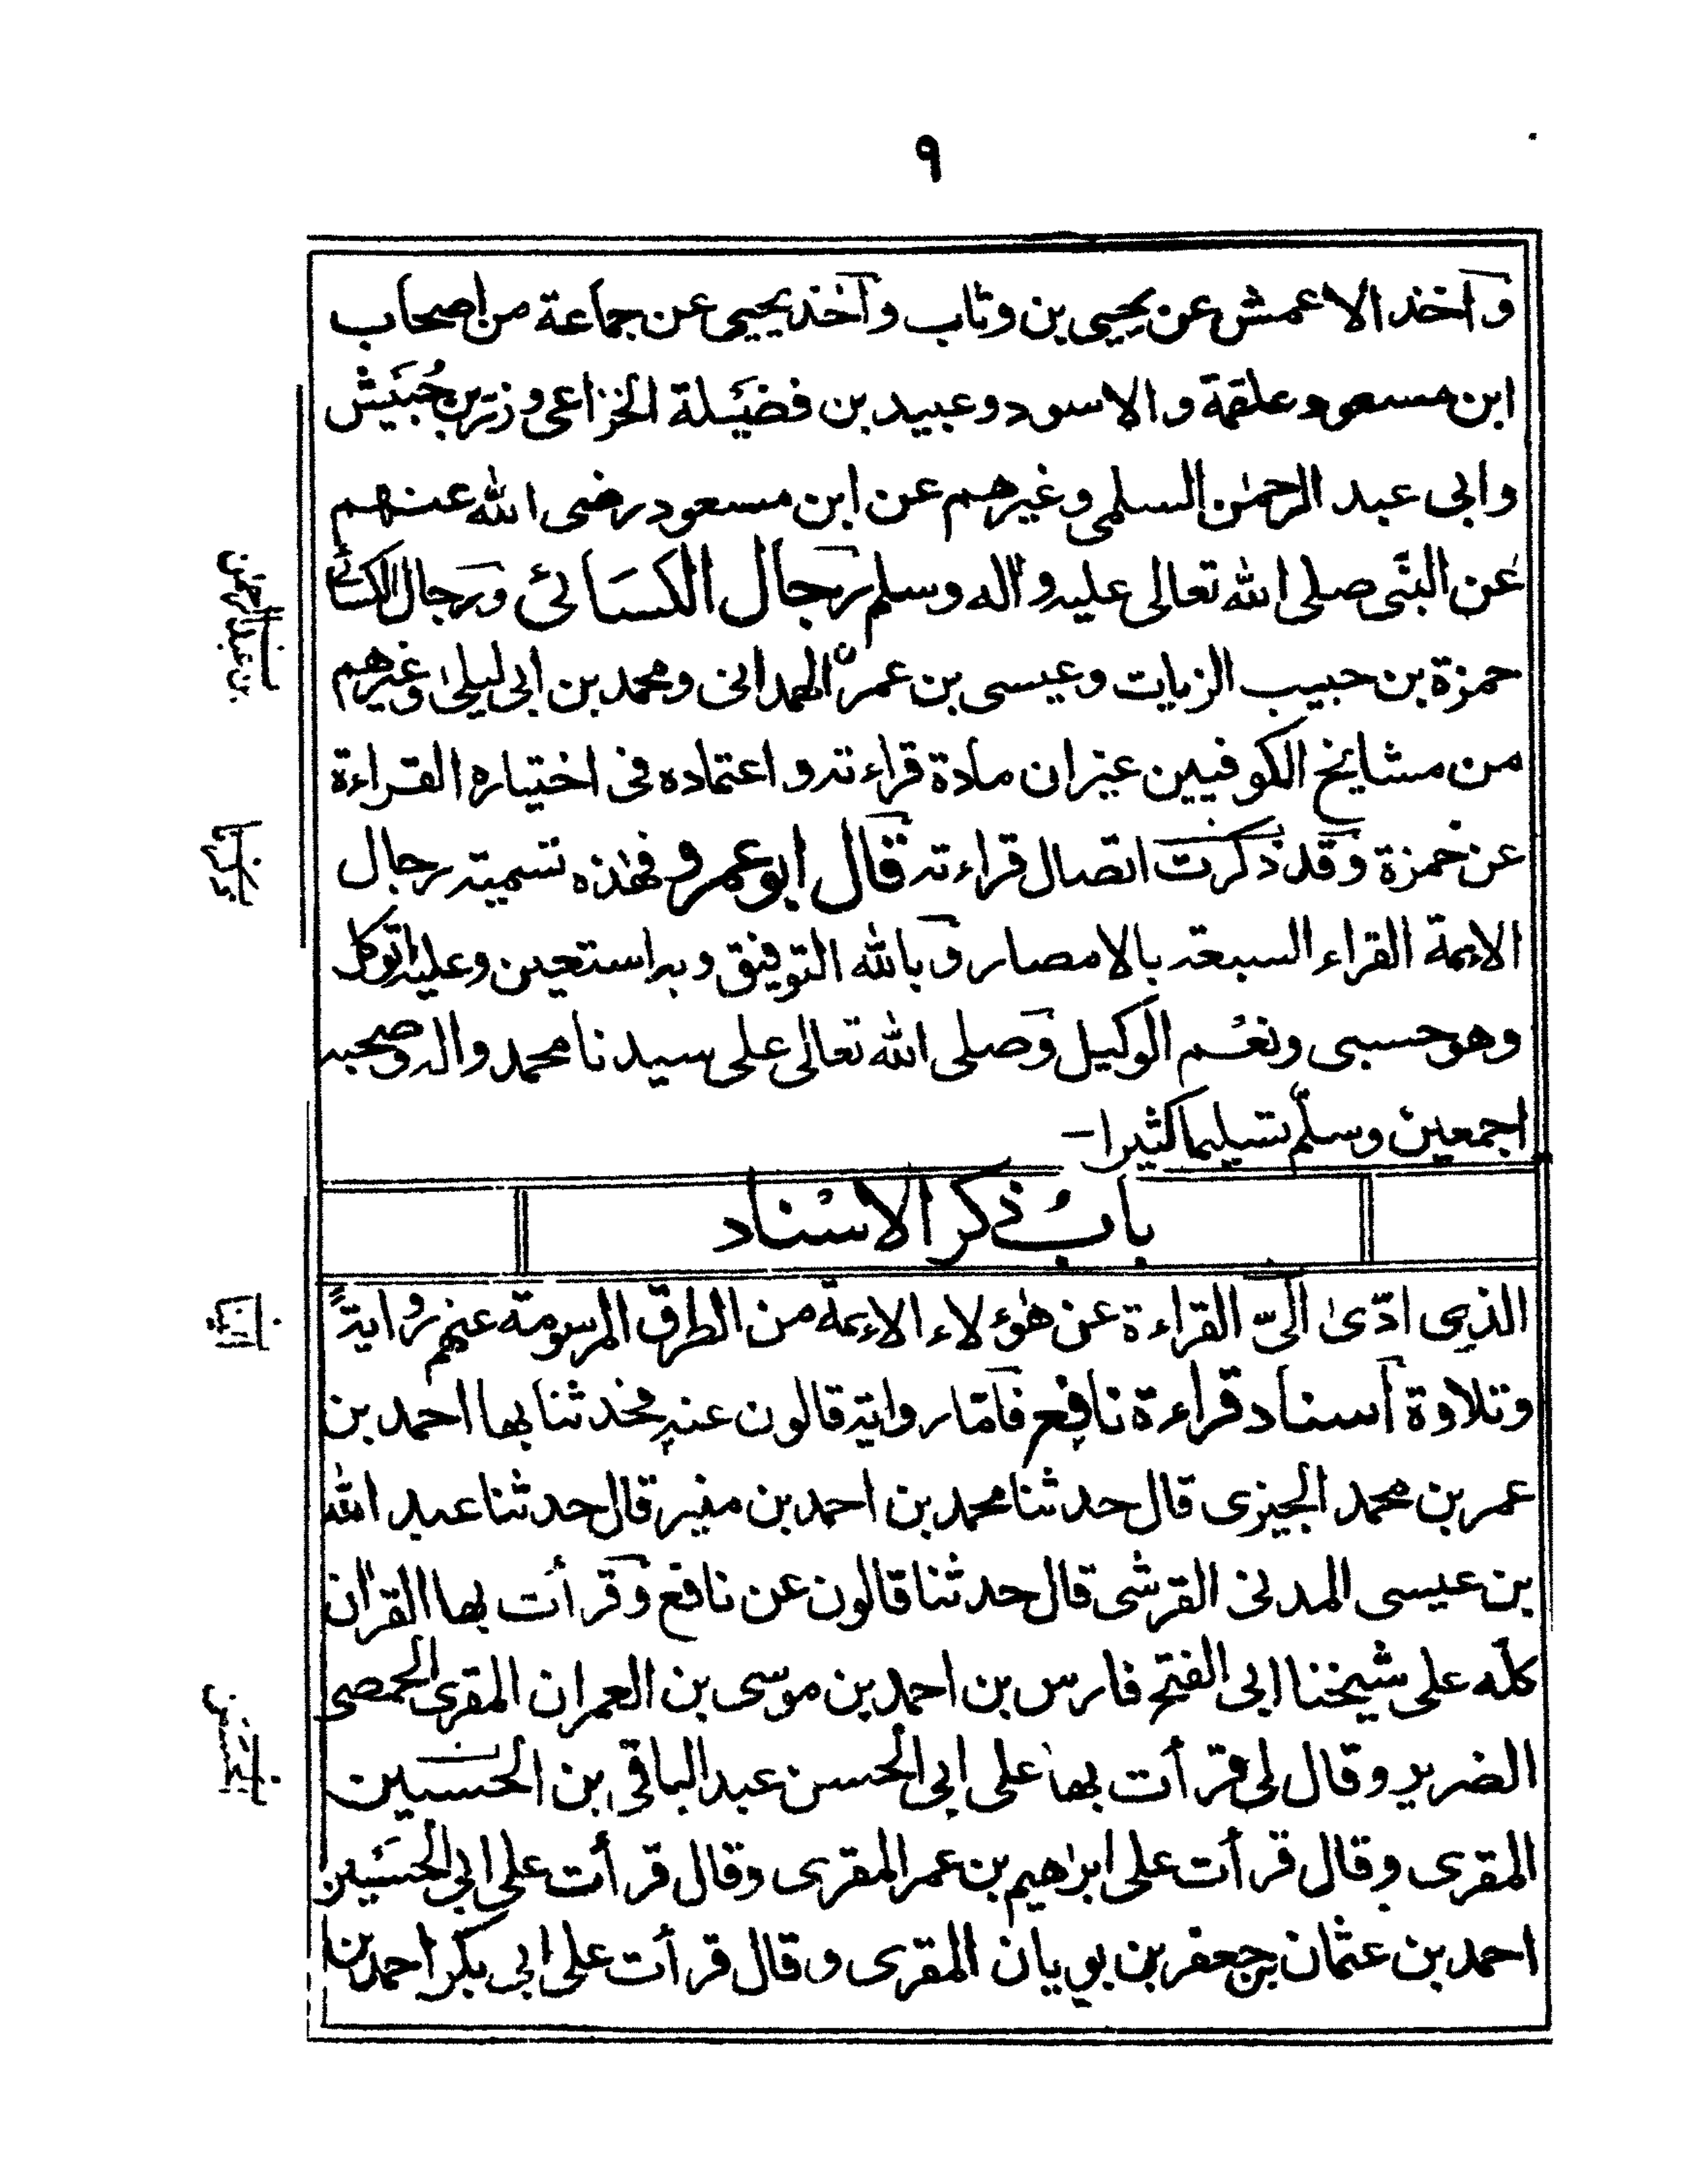 ٩
وأخذ الاعمش عن يحيى بن وثاب وأخذ يحيى عن جماعة من اصحاب
ابن مسعود وعلقمة و الاسود وعبيد بن فضَيْلة الخزاعى و زر بن حُبَيْش
وابى عبد الرحمٰن السلمى وغيرهم عن ابن مسعود رضى الله عنهم
عن النبى صلى الله تعالى عليه واٰله وسلم رجال الكسائى ورجال الكسائى
حمزة بن حبيب الزيات وعيسى بن عمر الهمدانى ومحمد بن ابى ليلىٰ وغيرهم
من مشايخ الكوفيين غير ان مادة قراءته واعتماده فى اختياره القراءة
عن حمزة وقد ذكرت اتصال قراءته قال ابو عمرو فهٰذه تسمية رجال
الايمة القراء السبعة بالامصار وبالله التوفيق وبه استعين وعليه اتوكل
وهو حسبى ونعْم الوكيل وصلى الله تعالى على سيدنا محمد واله وصحبه
اجمعين وسلّم تسليما كثيرا-
بابُ ذكر الاسْناد
الذى ادّىٰ الىّ القراءة عن هٰؤلاء الايمة من الطرق المرسومة عنهم روايةً
وتلاوة أسناد قراءة نافع فأمّا رواية قالون عنه فحدثنا بها احمد بن
عمر بن محمد الجيزى قال حدثنا محمد بن احمد بن منير قال حدثنا عبد الله
بن عيسى المدنى القرشى قال حدثنا قالون عن نافع وقرأت بها القراٰن
كلّه على شيخنا ابى الفتح فارس بن احمد بن موسى بن العمران المقرى الحمصى
الضرير وقال لى قرأت بها على ابى الحسن عبد الباقى بن الحسين
المقرى وقال قرأت على ابرٰهيم بن عمر المقرى وقال قرأت على ابى الحسَين
احمد بن عثمان بن جعفر بن بويان المقرى وقال قرأت على ابى بكر احمد بن